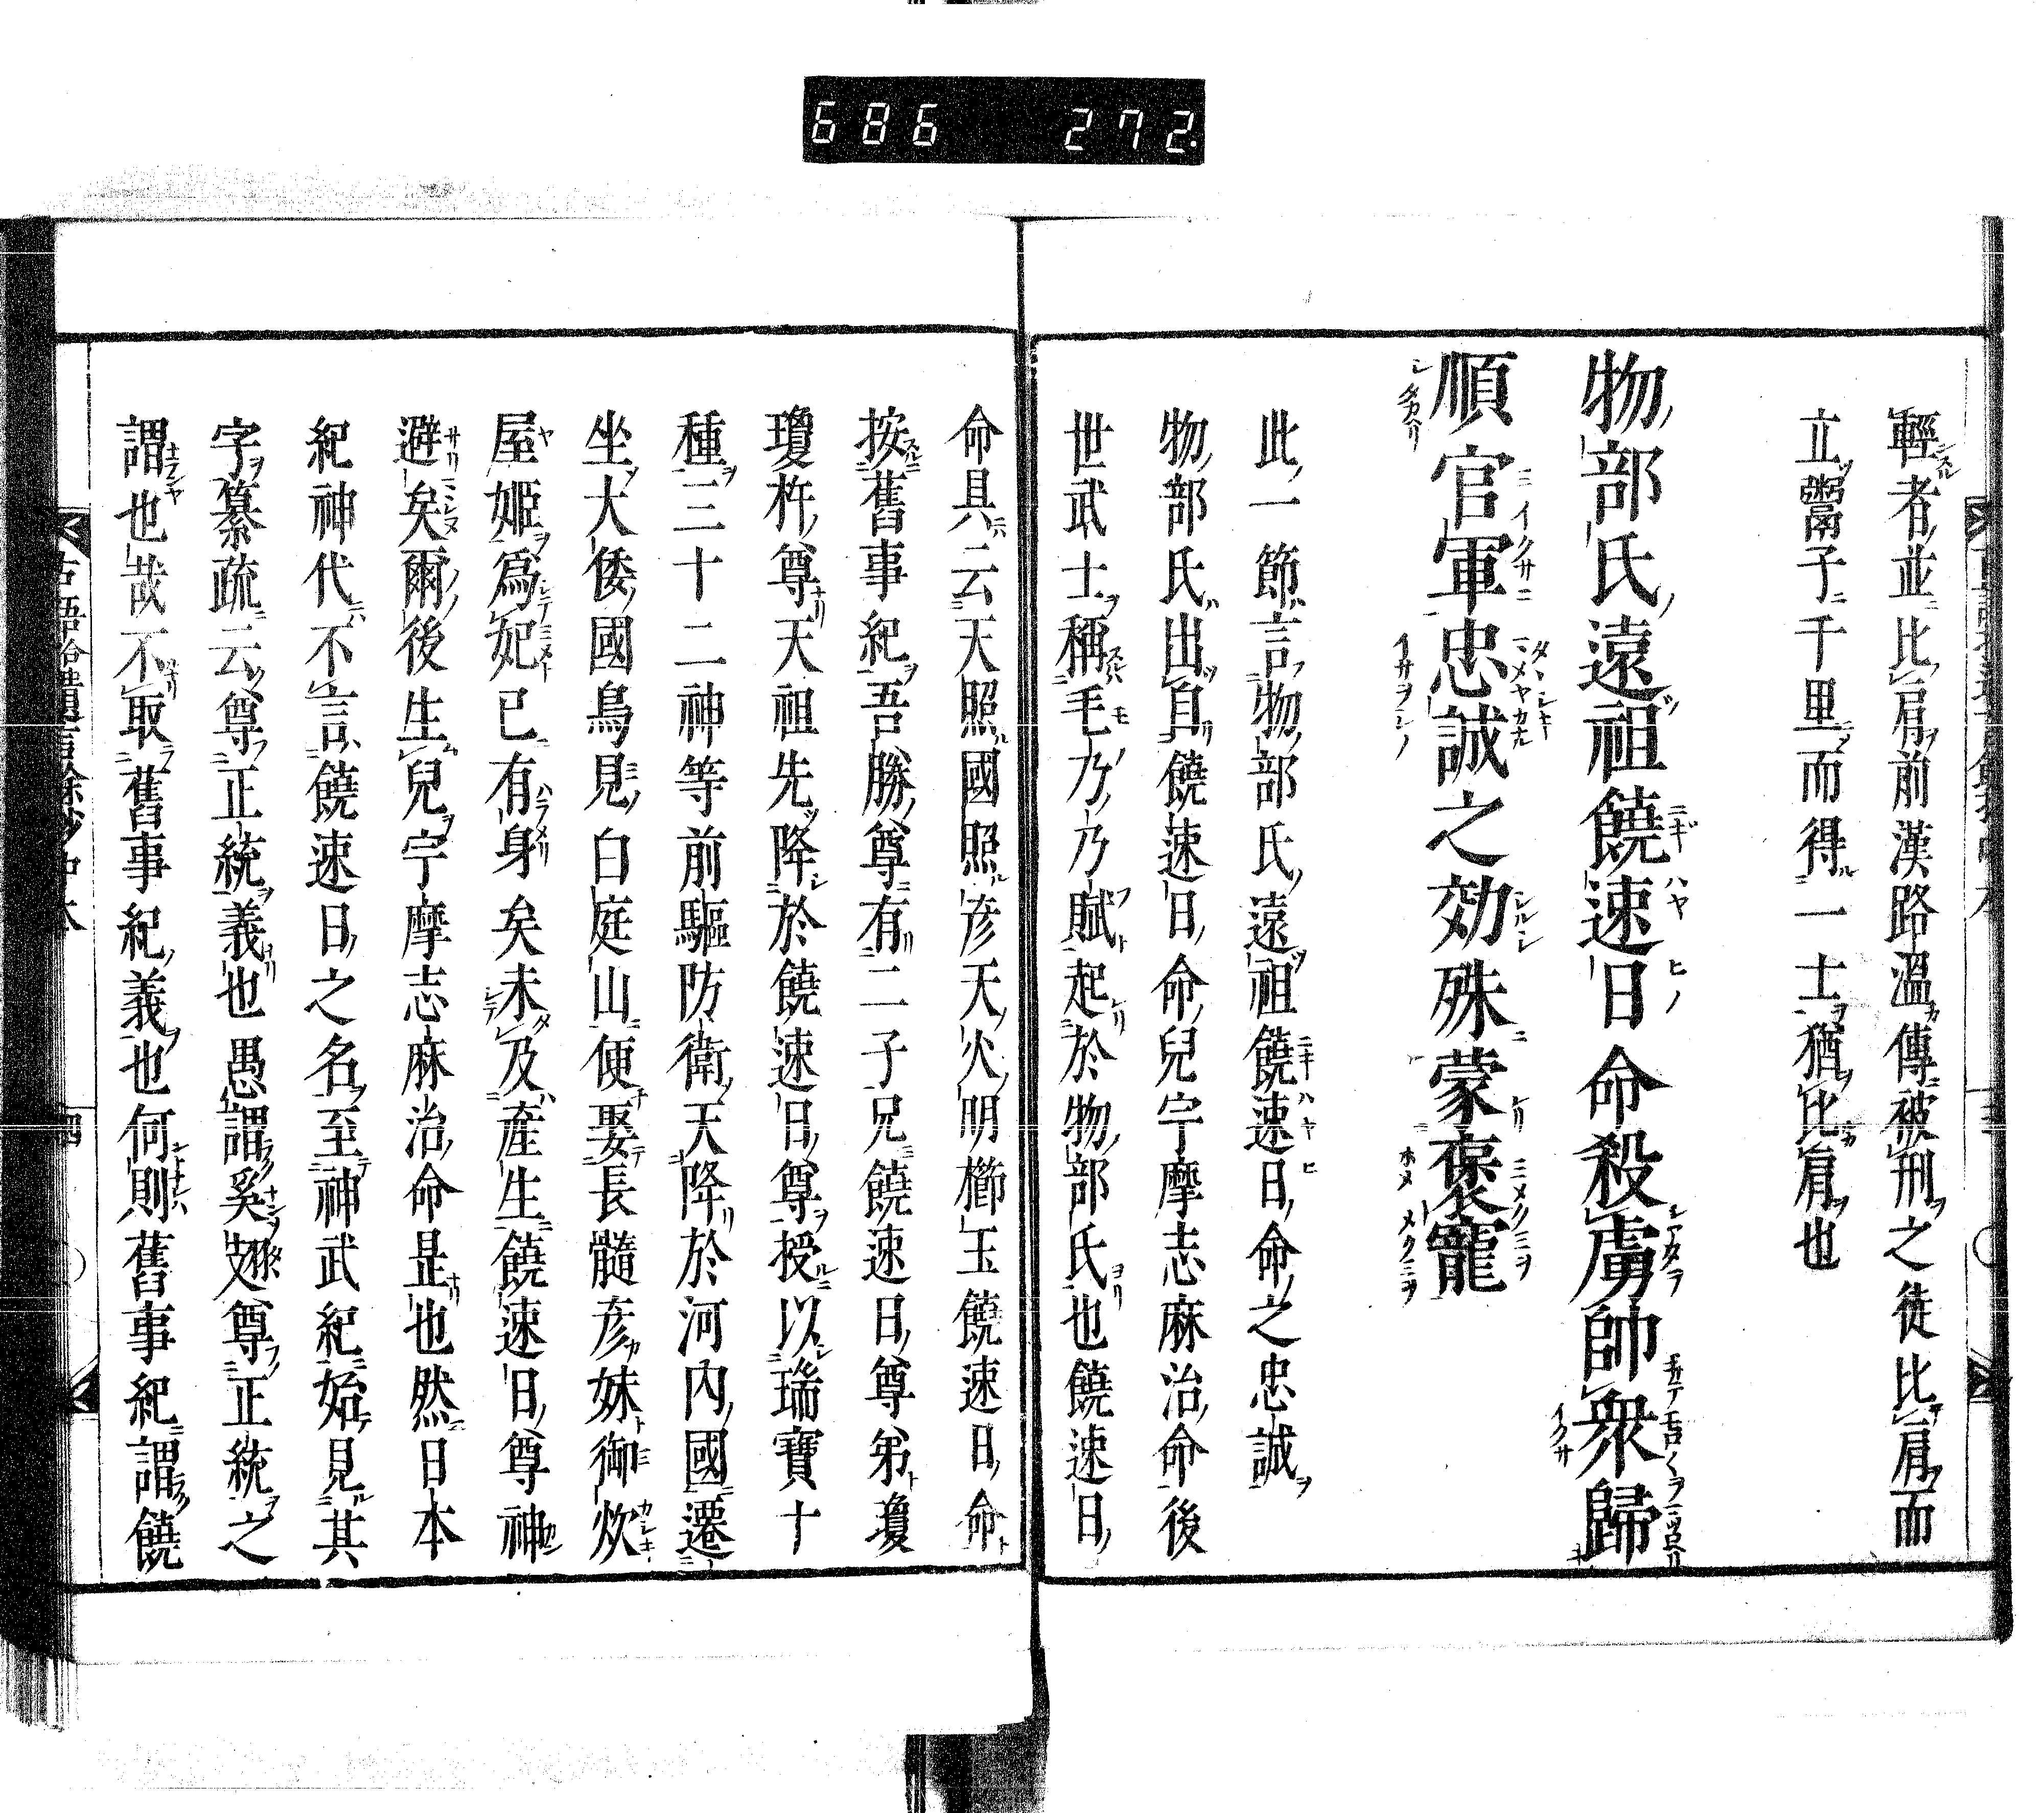 686 272
輕者並比肩前漢路溫傳被刑之徒比肩而
立鬻子千里而得一士猶比肩也
物部氏遠祖饒速日命殺虜帥衆歸
順官軍忠誠之効殊蒙褒寵
此一節言物部氏遠祖饒速日命之忠誠
物部氏出自饒速日命兒宇摩志麻治命後
世武士稱毛乃乃賦起於物部氏也饒速日
命具云天照國照彦天火明櫛玉饒速日命
按舊事紀吾勝尊有二子兄饒速日尊弟瓊
瓊杵尊天祖先降於饒速日尊授以瑞寶十
種三十二神等前驅防衛天降於河内國遷
坐大倭國鳥見白庭山便娶長髓彦妹御炊
屋姫爲妃已有身矣未及產生饒速日尊神
避矣爾後生兒宇摩志麻治命是也然日本
紀神代不言饒速日之名至神武紀始見其
字纂疏云尊正統義也愚謂奚翅尊正統之
謂也哉不取舊事紀義也何則舊事紀謂饒